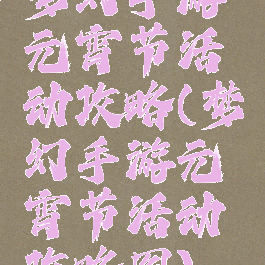 梦幻手游
元宵节活
动攻略(梦
幻手游元
宵节活动
攻略图)